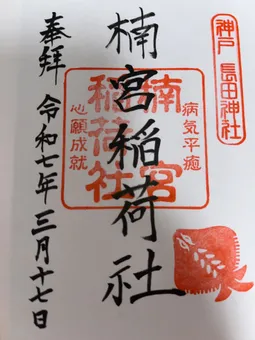 神戸 長田神社
病気平癒
楠宮稲荷社
楠宮
稲荷社
心願成就
奉拝
令和七年三月十七日